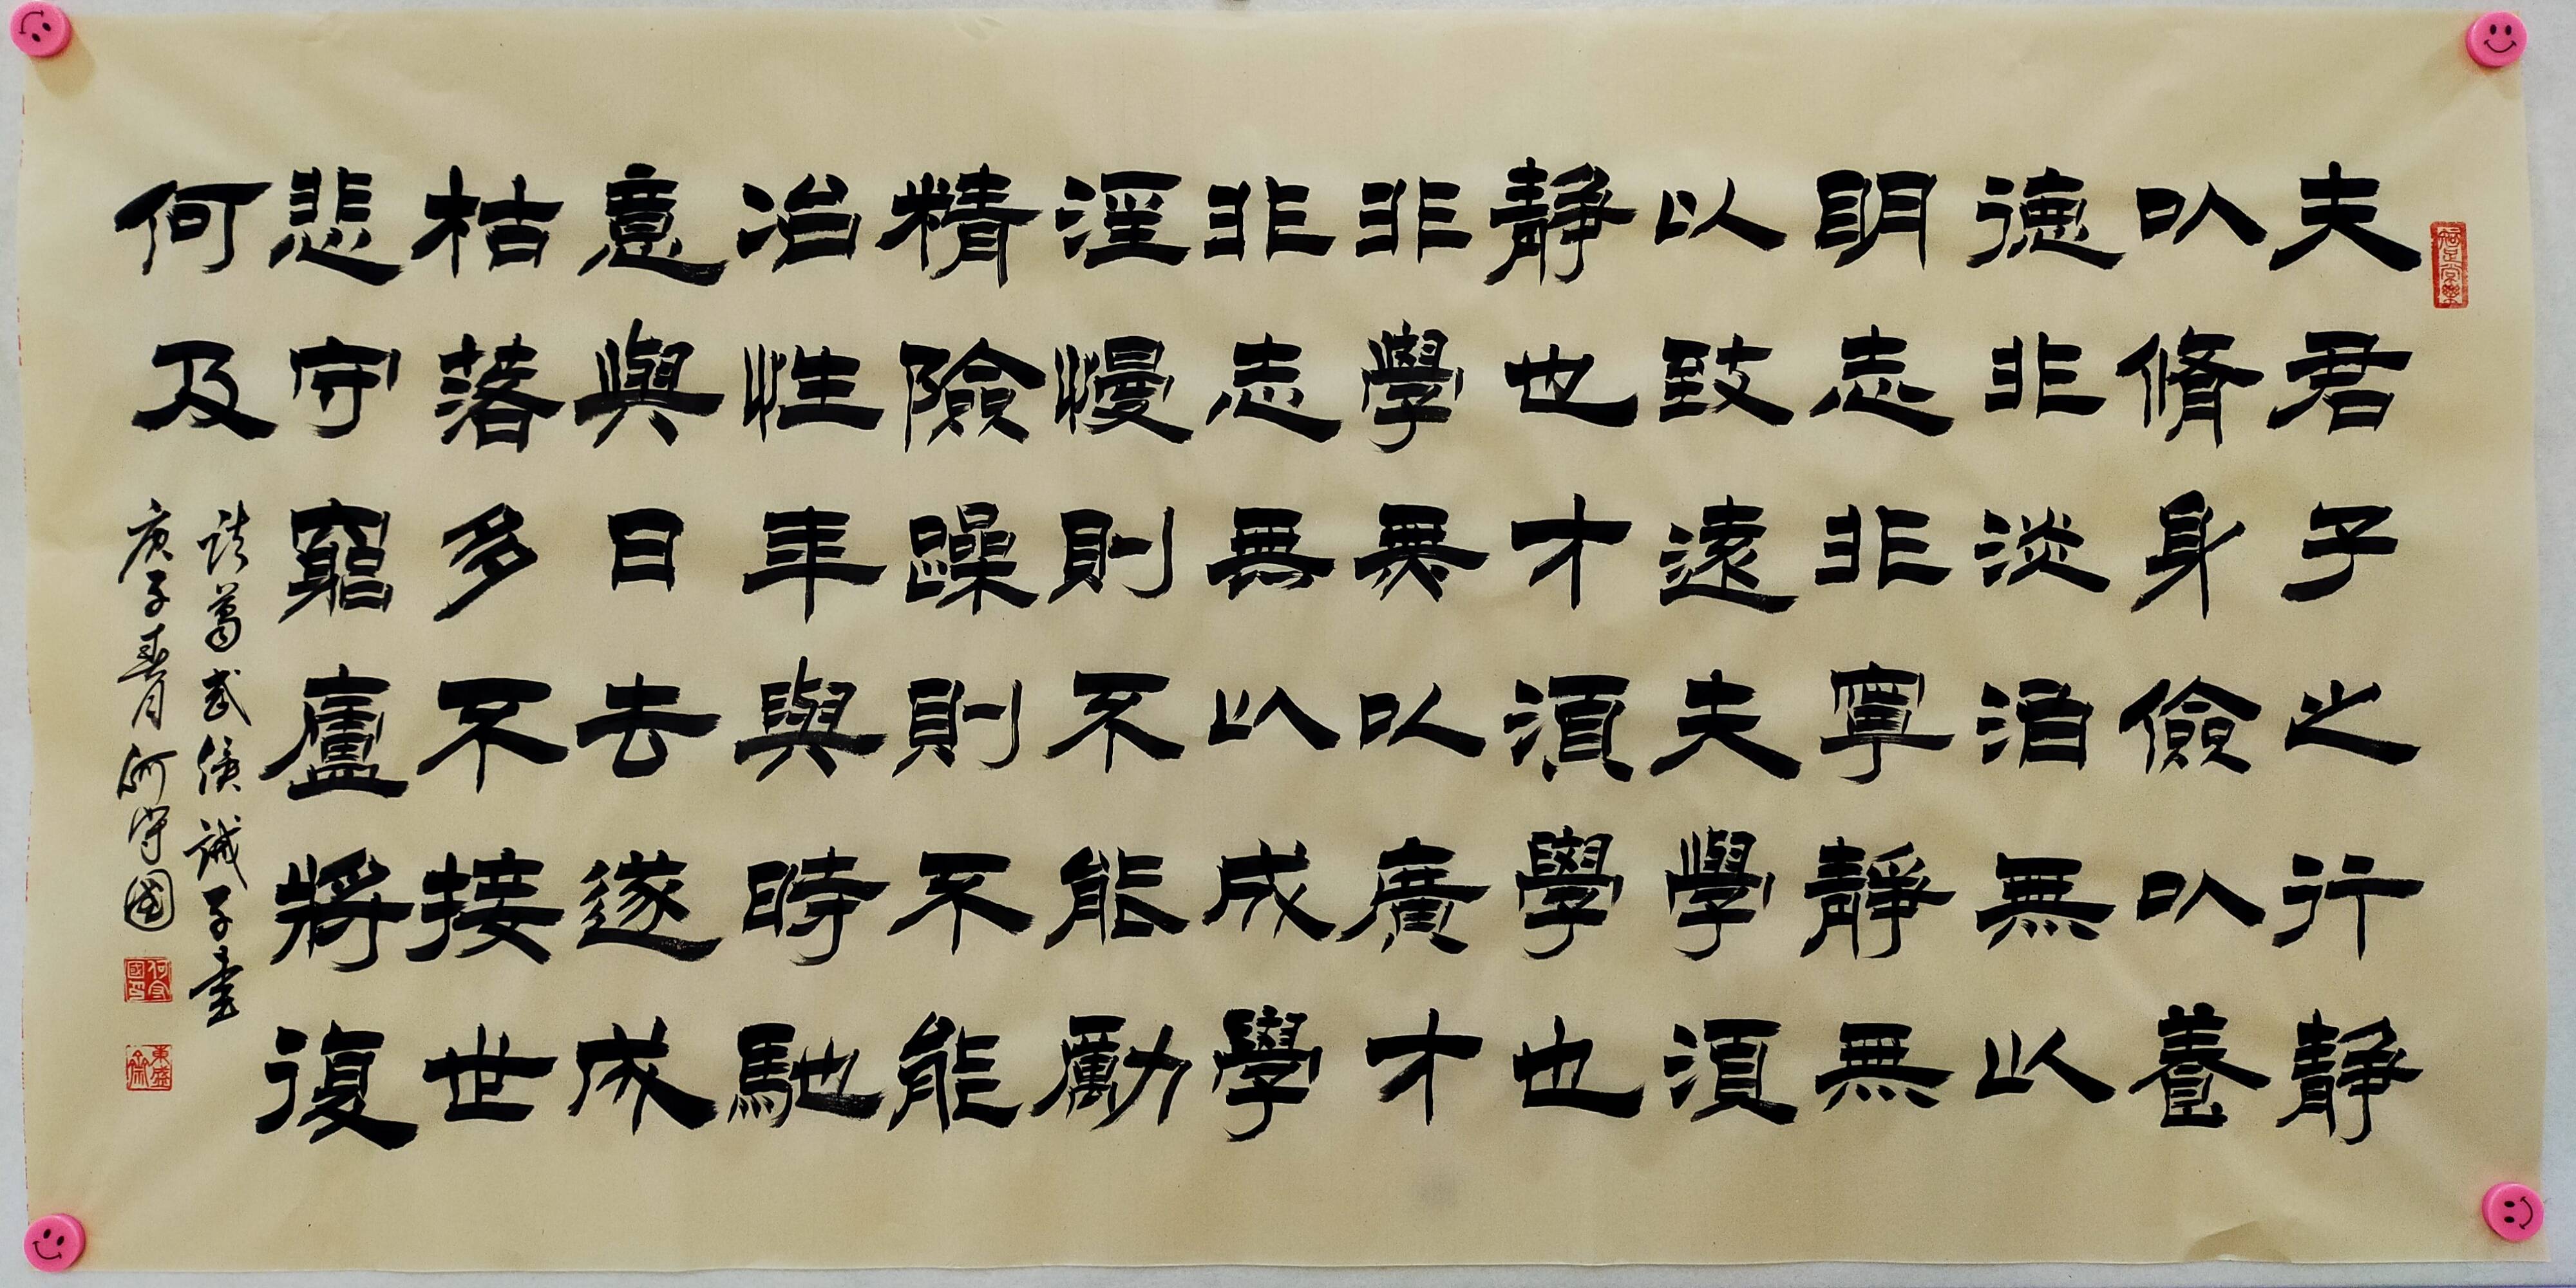 知足常樂
夫君子之行静
以脩身儉以養
德非淡泊無以
眀志非寧静無
以致遠夫學須
静也才須學也
非學無以廣才
非志無以成學
淫慢則不能勵
精險躁則不能
冶性年與時馳
意與日去遂成
枯落多不接世
悲守窮廬將復
何及
諸葛武侯誡子書
庚子春月何守國
何守國印